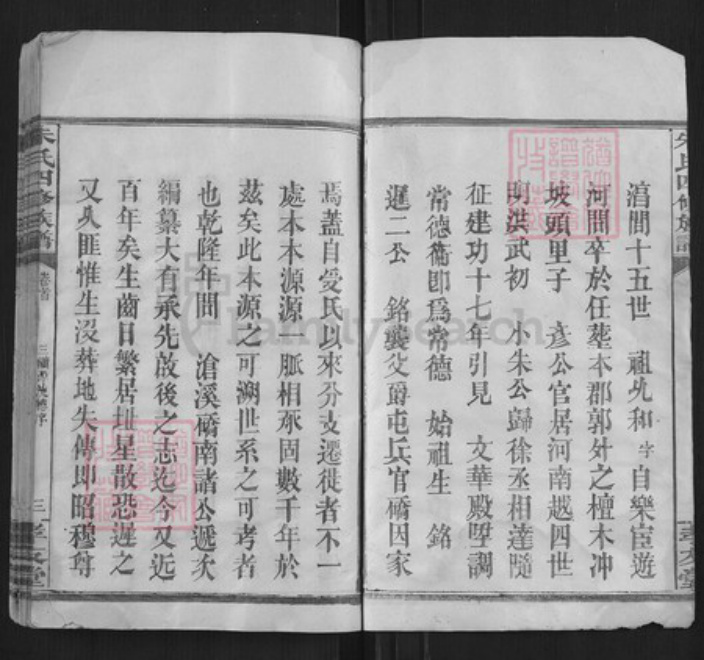 滈間十五世　祖允和字自樂宦遊
河間卒於任塟本郡郭外之檀木冲
坡頭里子　彥公官居河南越四世
明洪武初　小朱公歸徐丞相達隨
征建功十七年引見　文華殿墾調
常德衞卽爲常德　始祖生　銘
遲二公　銘襲父爵屯兵官礄因家
焉蓋自受氏以來分支遷徙者不一
處本本源源　脈相承固數千年於
茲矣此本源之可溯世系之可考者
也乾隆年間　滄溪礄南諸公遞次
編纂大有承先啟後之志迄今又近
百年矣生齒日繁居址星散恐遲之
又久匪惟生没葬地失傳即昭穆尊
朱氏四修族譜
卷首
三
朱氏四修族譜
FamilySearch